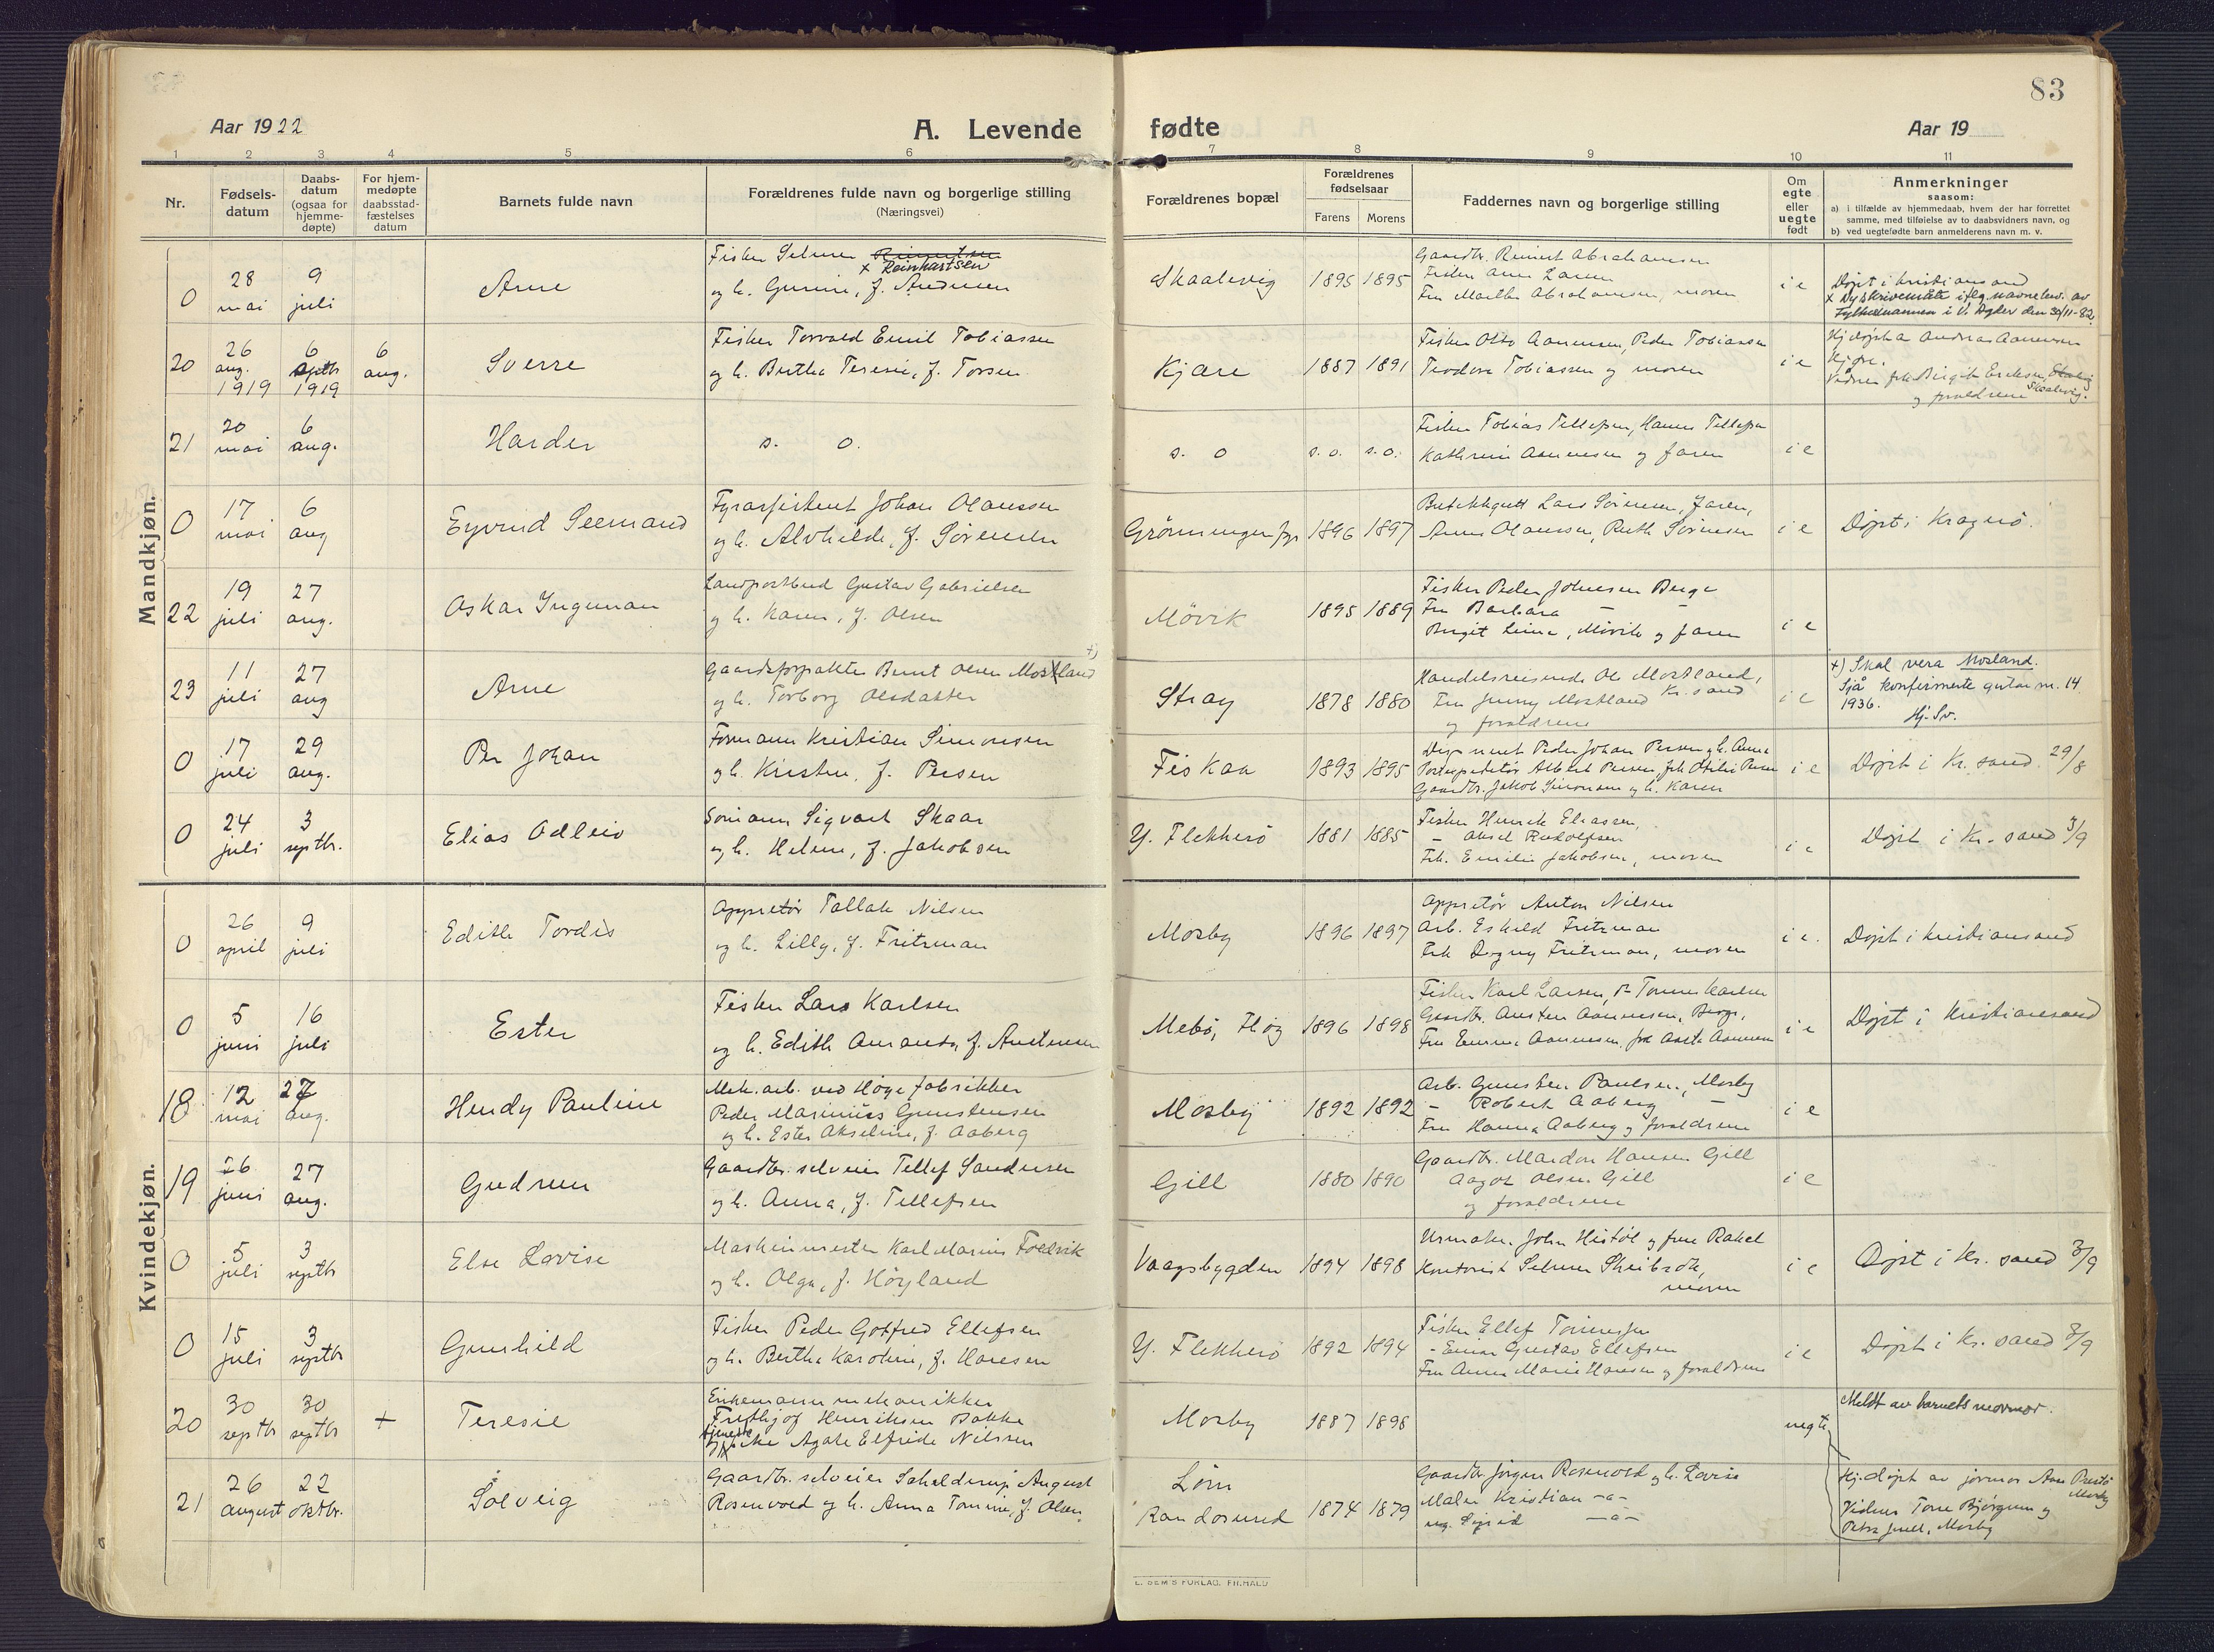 83
Aar 1922
A. Levende
fødte
Aar 19
1 2 3 4 5 6 7 8 9 10 11
Nr.
Fødsels-
datum
Daabs-
datum
(ogsaa for
hjemme-
døpte)
For hjem-
medøpte
daabsstad-
fæstelses
datum
Barnets fulde navn
Forældrenes fulde navn og borgerlige stilling
(Næringsvei)
Forældrenes bopæl
Forældrenes
fødselsaar
Farens Morens
Faddernes navn og borgerlige stilling
Om
egte
eller
uegte
født
Anmerkninger
saasom:
a) i tilfælde av hjemmedaab, hvem der har forrettet
samme, med tilføielse av to daabsvidners navn, og
b) ved uegtefødte barn anmelderens navn m. v.
Mandkjøn.
0
28 mai
9 juli
Arne
Fisker Selmer Reinertsen
x Reinhartsen
og h. Gurine, f. Andersen
Skaalevig
1895 1895
Gaardbr. Reinert Abrahamsen
Fisker
Fru Marthe Abrahamsen, moren
i e
Døpt i Kristiansand
x Ny skrivemåte iflg. navnebev. av
Fylkesmannen i V. Agder den 30/11-82.
20
26 aug. 1919
6 septbr 1919
6 aug.
Sverre
Fisker Torvald Emil Tobiassen
og h. Berthe Teresie, f. Torsen
Kjære
1887 1891
Fisker Otto Aanensen, Peder Tobiassen
Teodora Tobiassen og moren
i e
Hjdøpt a Andreas Aanensen
Kjøre.
Vidner frk Birgit Eriksen
Skaalevig.
og forældrene
21
20 mai
6 aug.
Harder
s. o.
s. o
s. o. s. o.
Fisker Tobias Tellefsen, Hanna Tellefsen
Kathrine Aanensen og faren
i e
0
17 mai
6 aug
Eyvind Seemand
Fyrassistent Johan Olaussen
og h. Alvhilde, f. Sørensen
Grønningen fyr
1896 1897
Lars Sørensen, faren,
Anna Olaussen, Ruth Sørensen
i e
Døpt i Kragerø.
22
19 juli
27 aug.
Oskar Ingeman
Landpostbud Gustav Gabrielsen
og h. Karen, f. Olsen
Møvik
1895 1889
Fisker Peder Johnsen Berge
Fru Barbara — —
Birgit Leina, Møvik og faren
i e
23
11 juli
27 aug
Arne
Gaardsforpakter Bernt Olsen Mostland +)
og h. Torborg Olsdatter
Stray
1878 1880
Handelsreisende Ole Mostland,
Fru Jenny Mostland Kr. sand
og forældrene
i e
+) Skal vera Mosland.
Sjå konfirmerte gutar nr. 14
1936.
Hj. Sv.
0
17 juli
29 aug.
Per Johan
Formann Kristian Simonsen
og h. Kirsten, f. Persen
Fiskaa
1893 1895
Peder Johan Persen og h. Anna
Postexpeditør Albert Persen, frk Otilie Persen
Gaardbr. Jakob Simonsen og h. Karen
i e
Døpt i Kr. sand. 29/8
0
24 juli
3 septbr.
Elias Odleiv
Sømann Sigvart Skaar
og h. Helene, f. Jakobsen
Y. Flekkerø
1881 1885
Fisker Henrik Eliassen,
— Aksel Rudolfsen
Frk. Emilie Jakobsen, moren
i e
Døpt i Kr. sand 3/9
Kvindekjøn.
0
26 april
9 juli
Edith Tordis
Appretør Tallak Nilsen
og h. Lilly, f. Fritzman
Mosby
1896 1897
Appretør Anton Nilsen
Arb. Eskild Fritzman
Frk Dagny Fritzman, moren
i e.
Døpt i Kristiansand
0
5 juni
16 juli
Ester
Fisker Lars Karlsen
og h. Edith Amanda, f. Austensen
Mebø, Fløg
1896 1898
Fisker Karl Larsen, Tomine Karlsen
Gaardbr. Austen Aanensen, Berge,
Fru Emma Aanensen, frk Aasta Aanensen
i e
Døpt i Kristiansand
18
12 mai
27 aug.
Hendy Pauline
Mek. arb. ved Høye fabrikker
Peder Marinius Gunstensen
og h. Ester Akseline, f. Aaberg
Mosby
1892 1892
Arb. Gunsten Paulsen, Mosby
— Robert Aaberg —
Fru Hanna Aaberg og forældrene
i e
19
26 juni
27 aug.
Gudrun
Gaardbr. selveier Tellef Sandersen
og h. Anna, f. Tellefsen
Gill
1880 1890
Gaardbr. Mardon Hansen Gill
Aagot Olsen Gill
og forældrene
i e
0
5 juli
3 septbr
Else Lovise
Maskinmester Karl Marius Foedvik
og h. Olga, f. Høyland
Vaagsbygden
1894 1898
Urmaker John Histøl og frue Rakel
Kontorist Selmer Skeibrok,
moren
i e
Døpt i Kr. sand 3/9
0
15 juli
3 septbr
Gunhild
Fisker Peder Gotfred Ellefsen
og h. Berthe Karoline, f. Hansen
Y. Flekkerø
1892 1894
Fisker Ellef Tønnessen
— Einar Gustav Ellefsen
Fru Anna Marie Hansen og forældrene
i e
Døpt i Kr. sand 3/9
20
30 septbr
30 septbr
+
Teresie
Enkemann mekanikker
Fredthjof Henriksen Bakke
og Agate Elfride Nilssen
Mosby
1887 1898
uegte
Meldt av barnets mormor.
Hj. døpt av jormor Aase
Mosby
Vidner Tone Bjørgum og
Petra Juell, Mosby
21
26 august
22 oktbr.
Solveig
Gaardbr. selveier Schelderup August
Rosenvold og h. Anna Tomine, f. Olsen
Løm
Randosund
1874 1879
Gaardbr Jørgen Rosenvold og h. Lovise
Maler Kristian —a—
ug. Sigrid —a—
E. SEM'S FORLAG. FR.HALD